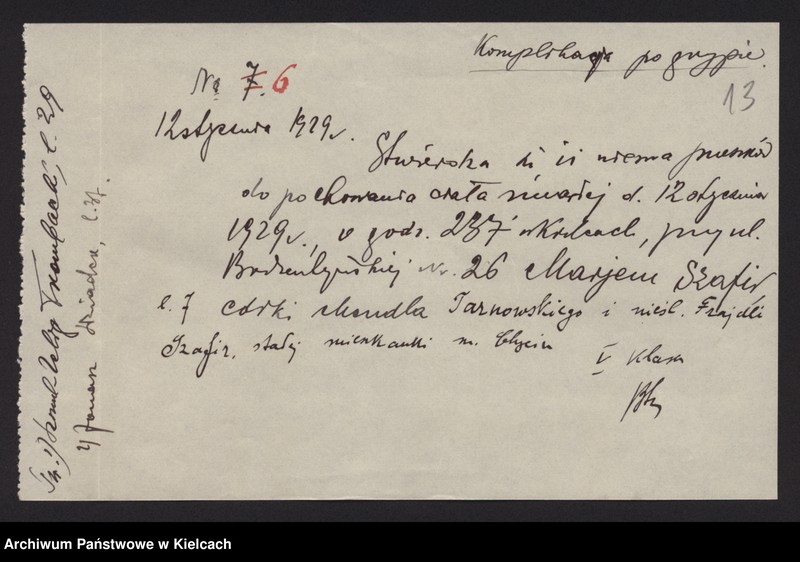 Komplikacja po grypie.
13
№ 7. 6
12 stycznia 1929 r.
Stwierdza się iż niema przeszkód
do pochowania ciała zmarłej d. 12 stycznia
1929 r., o godz. 23 w Kielcach, przy ul.
Bodzentyńskiej Nr. 26 Marjem Szafir
l. 7 córki Mendla Tarnowskiego i nieśl. Frajdli
Szafir, stałej mieszkanki m. Chęcin
V klasa
Św. 1) Szmul Zelig Trambacki, l. 29
2) Tomasz Dziadek, l. 37.
Archiwum Państwowe w Kielcach